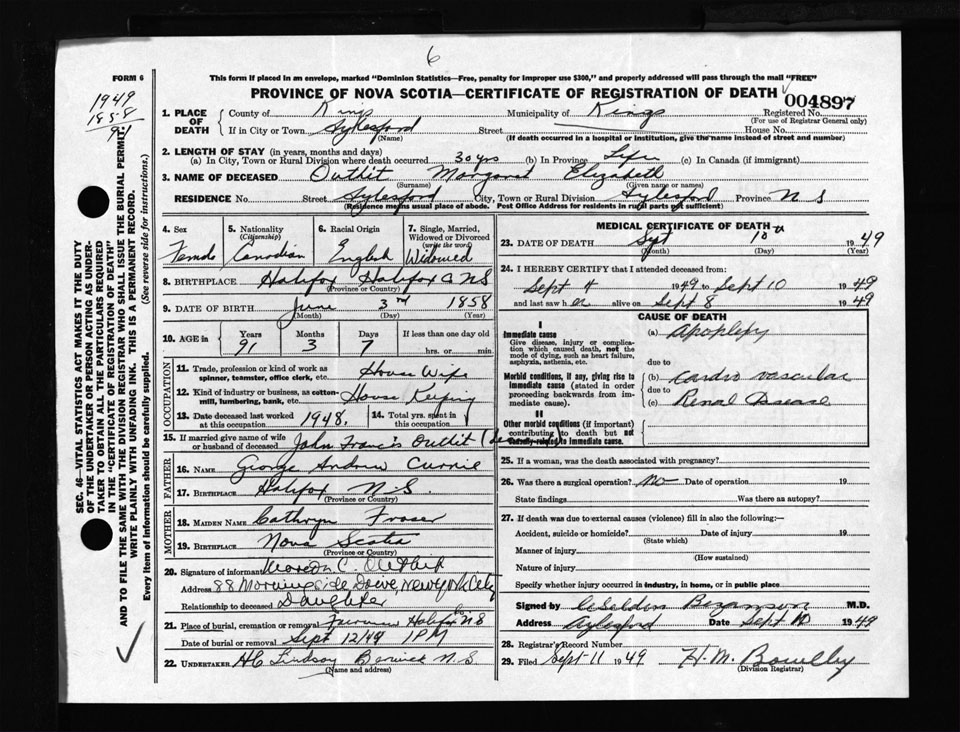 6
FORM 6
This form if placed in an envelope, marked "Dominion Statistics—Free, penalty for improper use $300," and properly addressed will pass through the mail "FREE"
PROVINCE OF NOVA SCOTIA—CERTIFICATE OF REGISTRATION OF DEATH
004897
1949
1858
91
1. PLACE OF DEATH County of Kings Municipality of Kings Registered No.
(For use of Registrar General only)
If in City or Town Aylesford Street House No.
(Name) (If death occurred in a hospital or institution, give the name instead of street and number)
2. LENGTH OF STAY (in years, months and days)
(a) In City, Town or Rural Division where death occurred 30 yrs (b) In Province Life (c) In Canada (if immigrant)
3. NAME OF DECEASED Outhit Margaret Elizabeth
(Surname) (Given name or names)
RESIDENCE No. Street Aylesford City, Town or Rural Division Aylesford Province N S
(Residence means usual place of abode. Post Office Address for residents in rural parts not sufficient)
4. Sex Female
5. Nationality (Citizenship) Canadian
6. Racial Origin English
7. Single, Married, Widowed or Divorced (write the word) Widowed
8. BIRTHPLACE Halifax Halifax C NS
(Province or Country)
9. DATE OF BIRTH June 3rd 1858
(Month) (Day) (Year)
10. AGE in Years Months Days If less than one day old
91 3 7 hrs. or min.
OCCUPATION
11. Trade, profession or kind of work as spinner, teamster, office clerk, etc. House Wife
12. Kind of industry or business, as cotton-mill, lumbering, bank, etc. House Keeping
13. Date deceased last worked at this occupation 1948. 14. Total yrs. spent in this occupation
15. If married give name of wife or husband of deceased John Francis Outhit
FATHER
16. NAME George Andrew Currie
17. BIRTHPLACE Halifax N.S.
(Province or Country)
MOTHER
18. MAIDEN NAME Cathryn Fraser
19. BIRTHPLACE Nova Scotia
(Province or Country)
20. Signature of informant C. Outhit
Address 88 Morningside Drive, New York City
Relationship to deceased Daughter
21. Place of burial, cremation or removal Fairview Halifax N S
Date of burial or removal Sept 12/49 1 PM
22. UNDERTAKER HC Lindsay Berwick N.S.
(Name and address)
MEDICAL CERTIFICATE OF DEATH
23. DATE OF DEATH Sept 10 1949
(Month) (Day) (Year)
24. I HEREBY CERTIFY that I attended deceased from:
Sept 4 1949 to Sept 10 1949
and last saw her alive on Sept 8 1949
CAUSE OF DEATH
I
Immediate cause
Give disease, injury or complication which caused death, not the mode of dying, such as heart failure, asphyxia, asthenia, etc.
(a) Apoplexy
due to
Morbid conditions, if any, giving rise to immediate cause (stated in order proceeding backwards from immediate cause).
(b) Cardio vascular
due to
(c) Renal Disease
II
Other morbid conditions (if important) contributing to death but not causally related to immediate cause.
25. If a woman, was the death associated with pregnancy?
26. Was there a surgical operation? no Date of operation 19
State findings Was there an autopsy?
27. If death was due to external causes (violence) fill in also the following:—
Accident, suicide or homicide? Date of injury 19
(State which)
Manner of injury
(How sustained)
Nature of injury
Specify whether injury occurred in industry, in home, or in public place
Signed by Bezanson M.D.
Address Aylesford Date Sept 10 1949
28. Registrar's Record Number
29. Filed Sept 11 1949 H. M. Bowlby
(Division Registrar)
SEC. 46—VITAL STATISTICS ACT MAKES IT THE DUTY
OF THE UNDERTAKER OR PERSON ACTING AS UNDER-
TAKER TO OBTAIN ALL THE PARTICULARS REQUIRED
IN THE "CERTIFICATE OF REGISTRATION OF DEATH"
AND TO FILE THE SAME WITH THE DIVISION REGISTRAR WHO SHALL ISSUE THE BURIAL PERMIT.
WRITE PLAINLY WITH UNFADING INK. THIS IS A PERMANENT RECORD.
Every item of information should be carefully supplied. (See reverse side for instructions.)